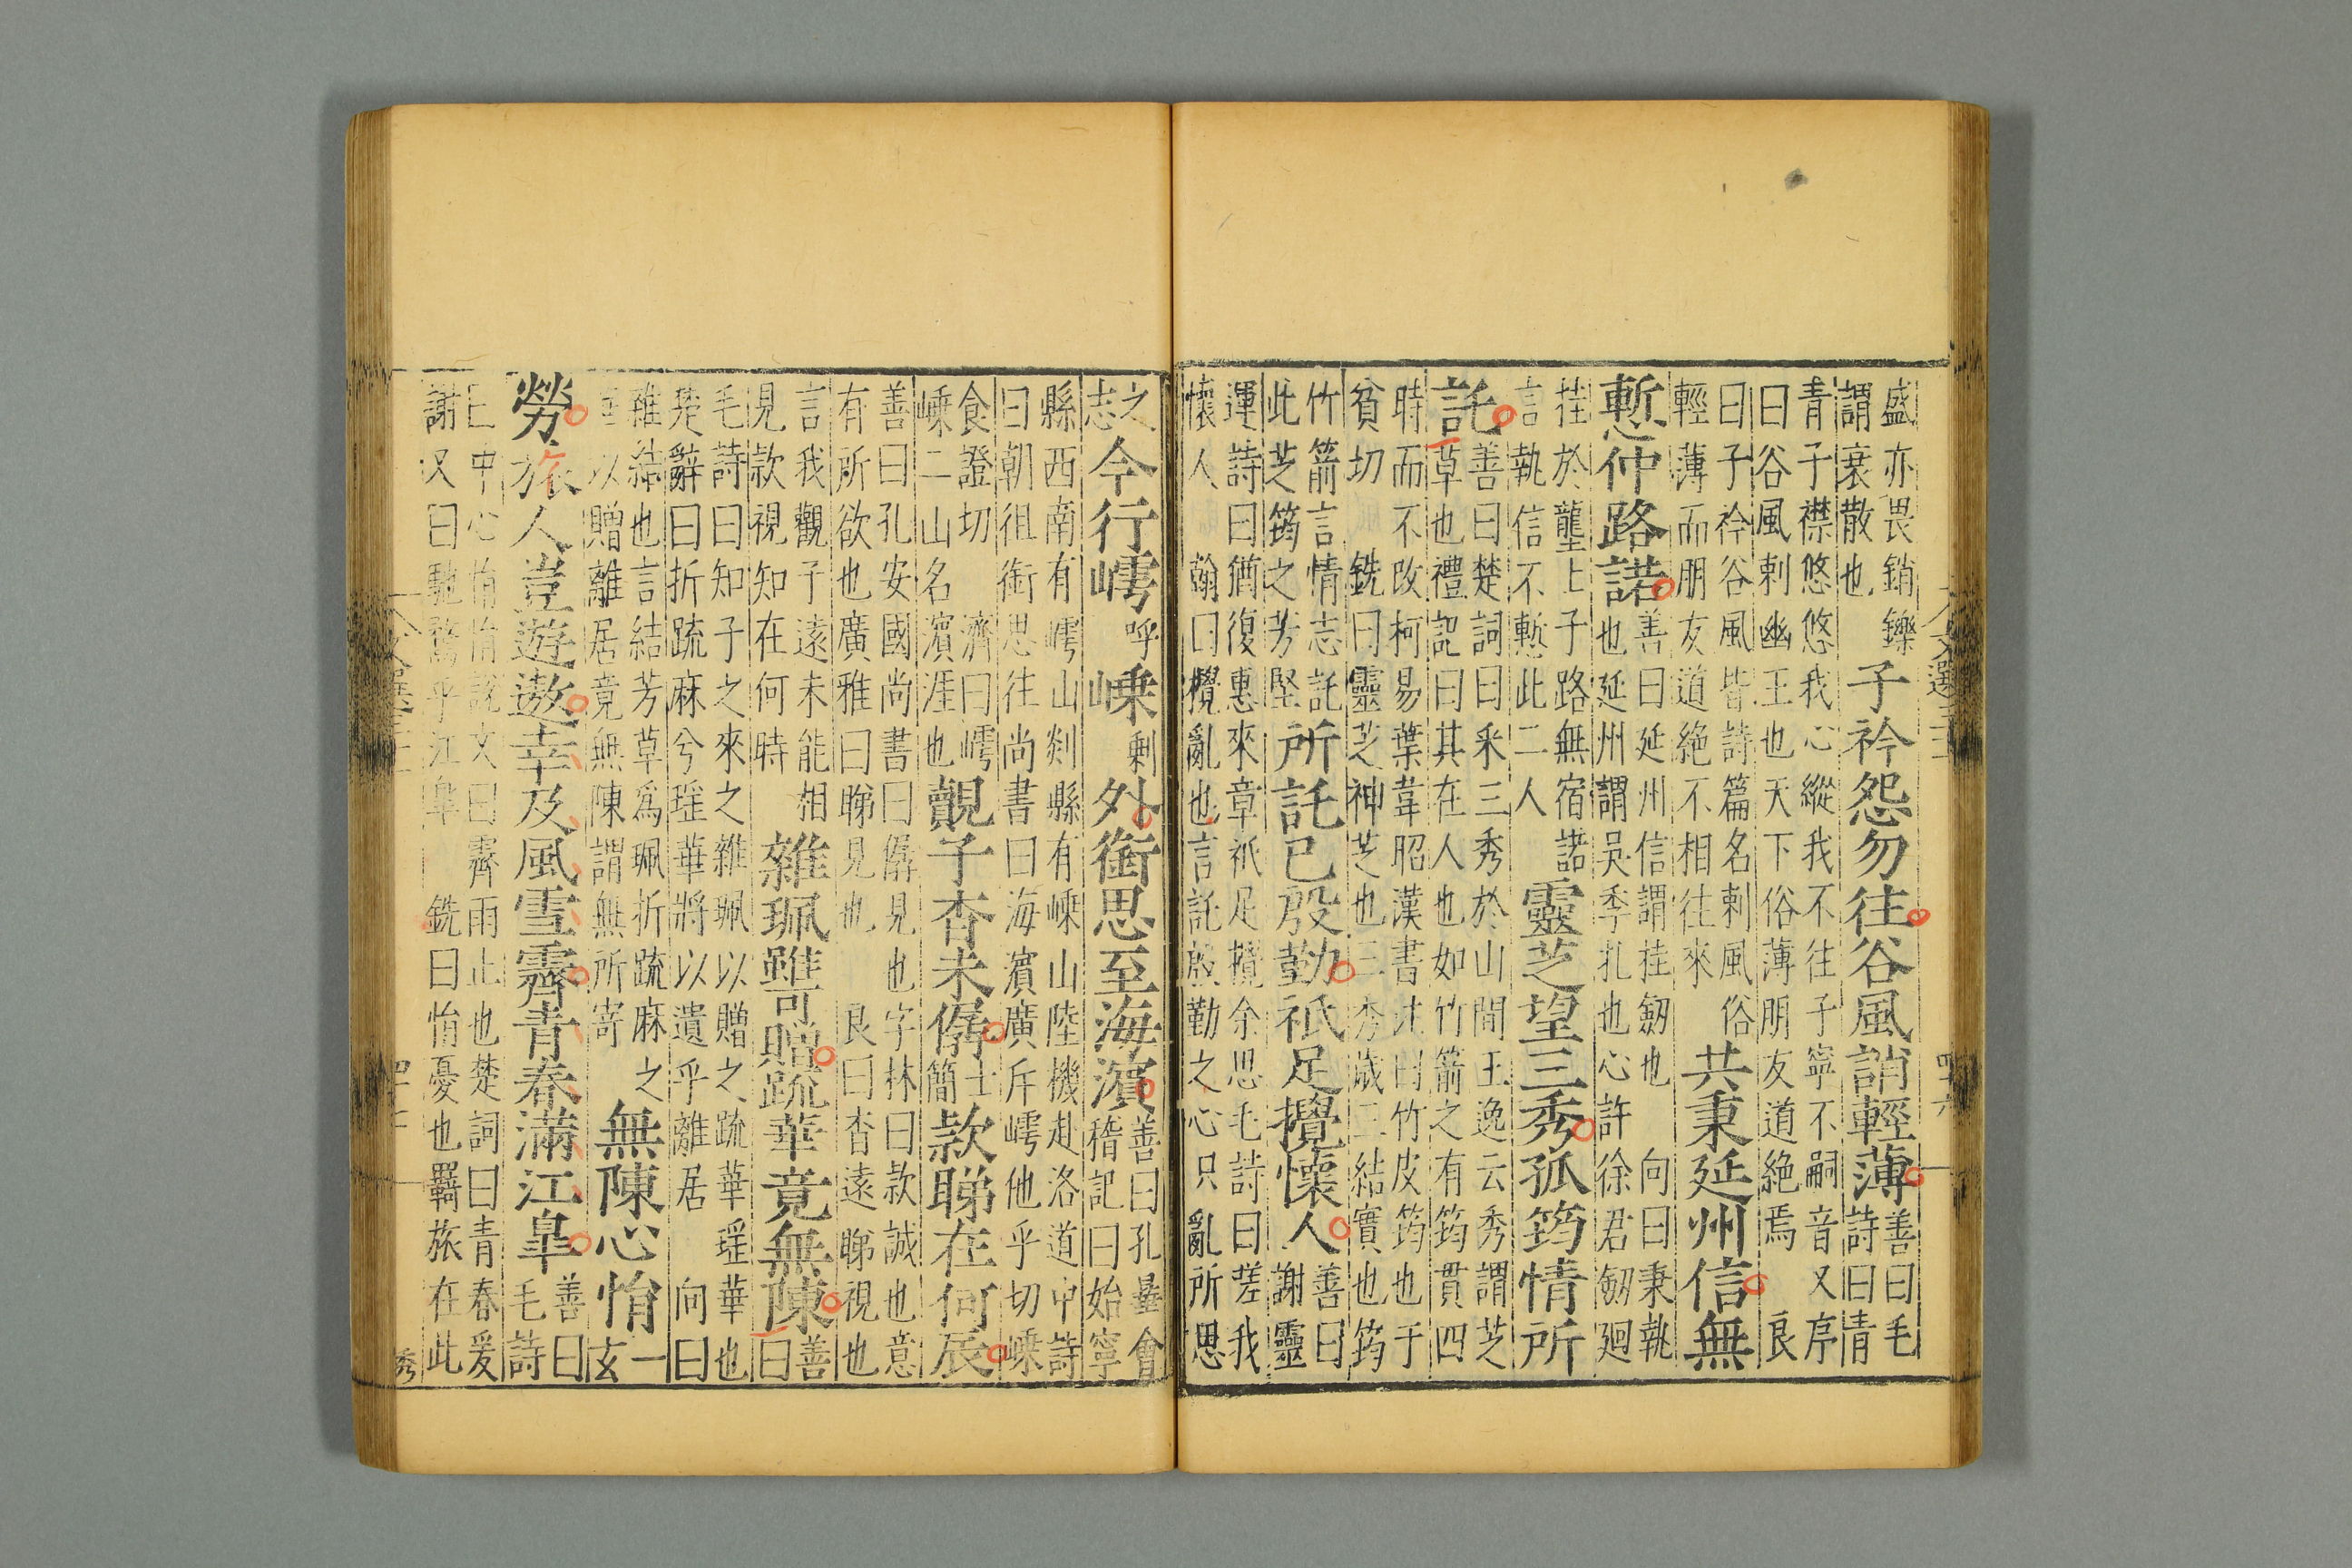 盛亦畏銷鑠
謂衰散也
子衿怨勿往谷風誚輕薄
善曰毛
詩曰青
青子襟悠悠我心縱我不往子寧不嗣音又序
曰谷風刺幽王也天下俗薄朋友道絶焉　良
曰子衿谷風皆詩篇名刺風俗
輕薄而朋友道絶不相往來
共秉延州信無
慙仲路諾
善曰延州信謂挂劔也　向曰秉執
也延州謂吳季扎也心許徐君劔廻
挂於壟上子路無宿諾
言執信不慙此二人
靈芝望三秀孤筠情所
託
善曰楚詞曰采三秀於山間王逸云秀謂芝
草也禮記曰其在人也如竹箭之有筠貫四
時而不改柯易葉韋昭漢書注曰竹皮筠也于
貧切　銑曰靈芝神芝也三秀歲三結實也筠
竹箭言情志託
此芝筠之芳堅
所託已殷勤祇足攪懷人
善曰
謝靈
運詩曰猶復惠來章祇足攪余思毛詩曰嗟我
懷人　翰曰攪亂也言託殷勤之心只亂所思
之
志
今行嶀呼嵊剩外銜思至海濱
善曰孔曅會
稽記曰始寧
縣西南有嶀山剡縣有嵊山陸機赴洛道中詩
曰朝徂銜思往尚書曰海濱廣斥嶀他乎切嵊
食證切　濟曰嶀
嵊二山名濱涯也
覿子杳未僝
士
簡
款睇在何辰
善曰孔安國尚書曰僝見也字林曰款誠也意
有所欲也廣雅曰睇見也　良曰杳遠睇視也
言我觀子遠未能相
見款視知在何時
雜珮雖可贈疏華竟無陳
善
曰
毛詩曰知子之來之雜珮以贈之疏華瑶華也
楚辭曰折疏麻兮瑶華將以遺乎離居　向曰
雜結也言結芳草爲珮折疏麻之
以贈離居竟無陳謂無所寄
無陳心悁
一
玄
勞旅人豈遊遨幸及風雪霽青春滿江臯
善曰
毛詩
曰中心悁悁說文曰霽雨止也楚詞曰青春爰
謝又曰馳騖乎江臯　銑曰悁憂也羈旅在此
秀